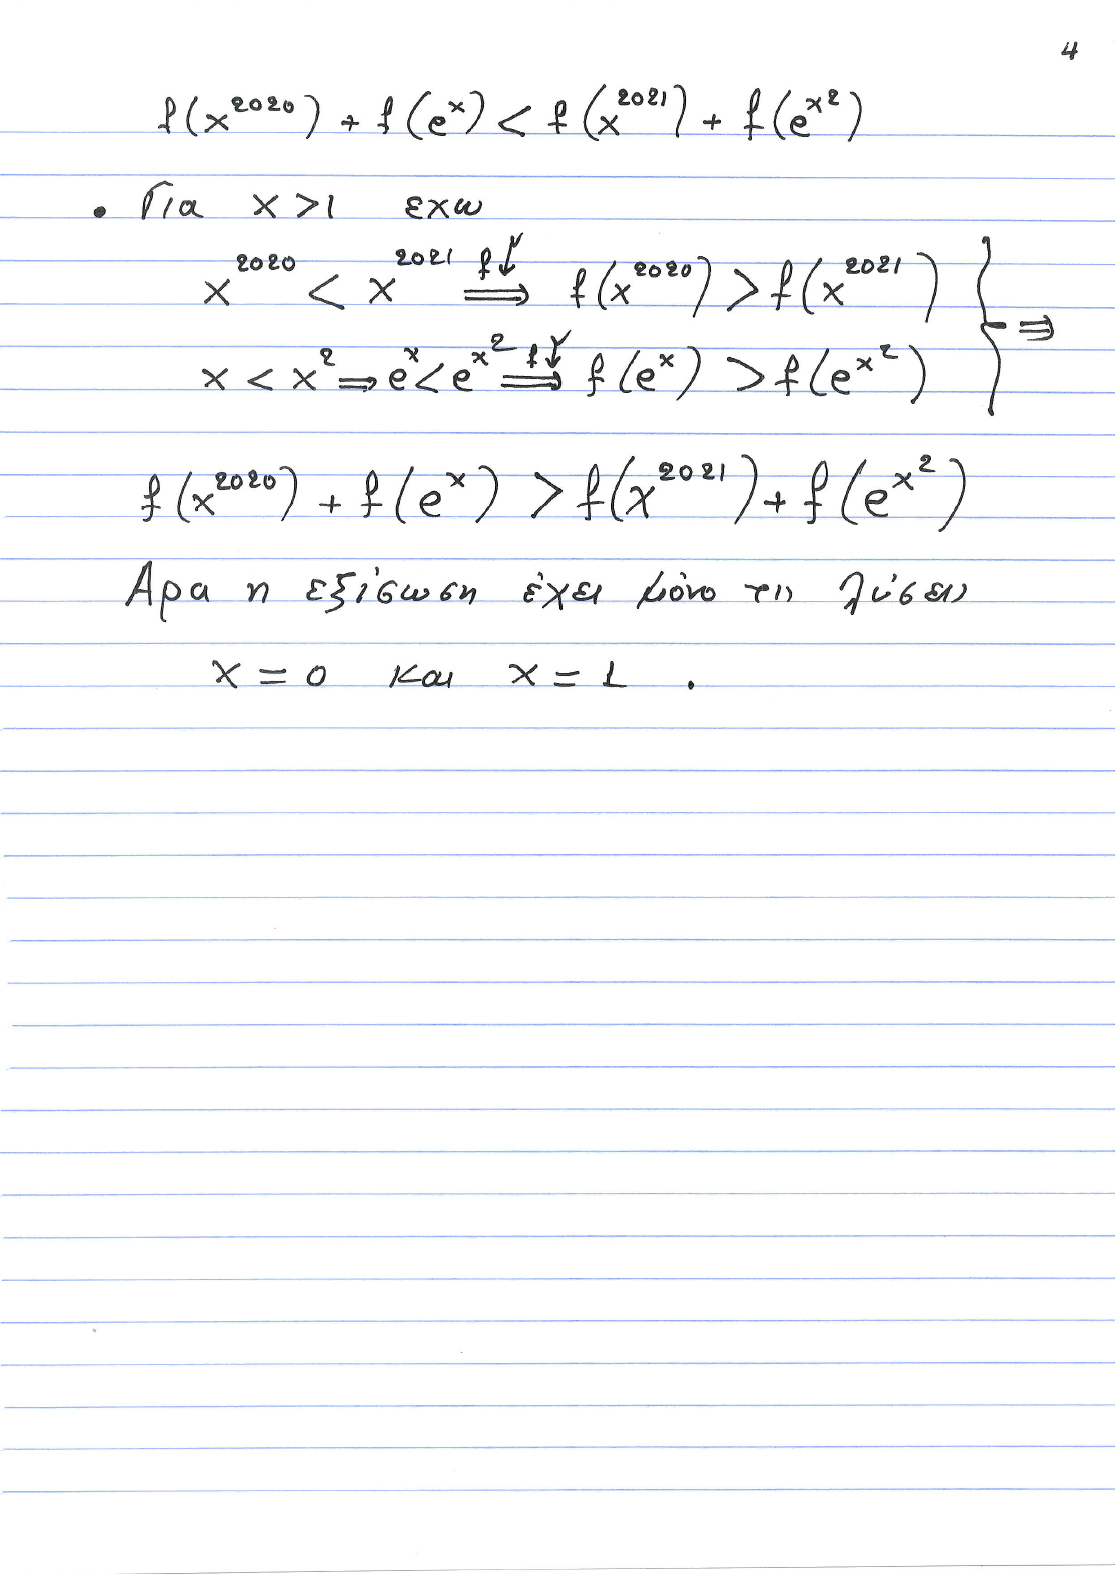 4
f(x^2020) + f(e^x) < f(x^2021) + f(e^x^2)
• Για x > 1 εχω
x^2020 < x^2021 f↓ ⟹ f(x^2020) > f(x^2021)
x < x^2 ⟹ e^x < e^x^2 f↓ ⟹ f(e^x) > f(e^x^2) } ⟹
f(x^2020) + f(e^x) > f(x^2021) + f(e^x^2)
Αρα η εξίσωση έχει μόνο τις λύσεις
x = 0 και x = 1 .